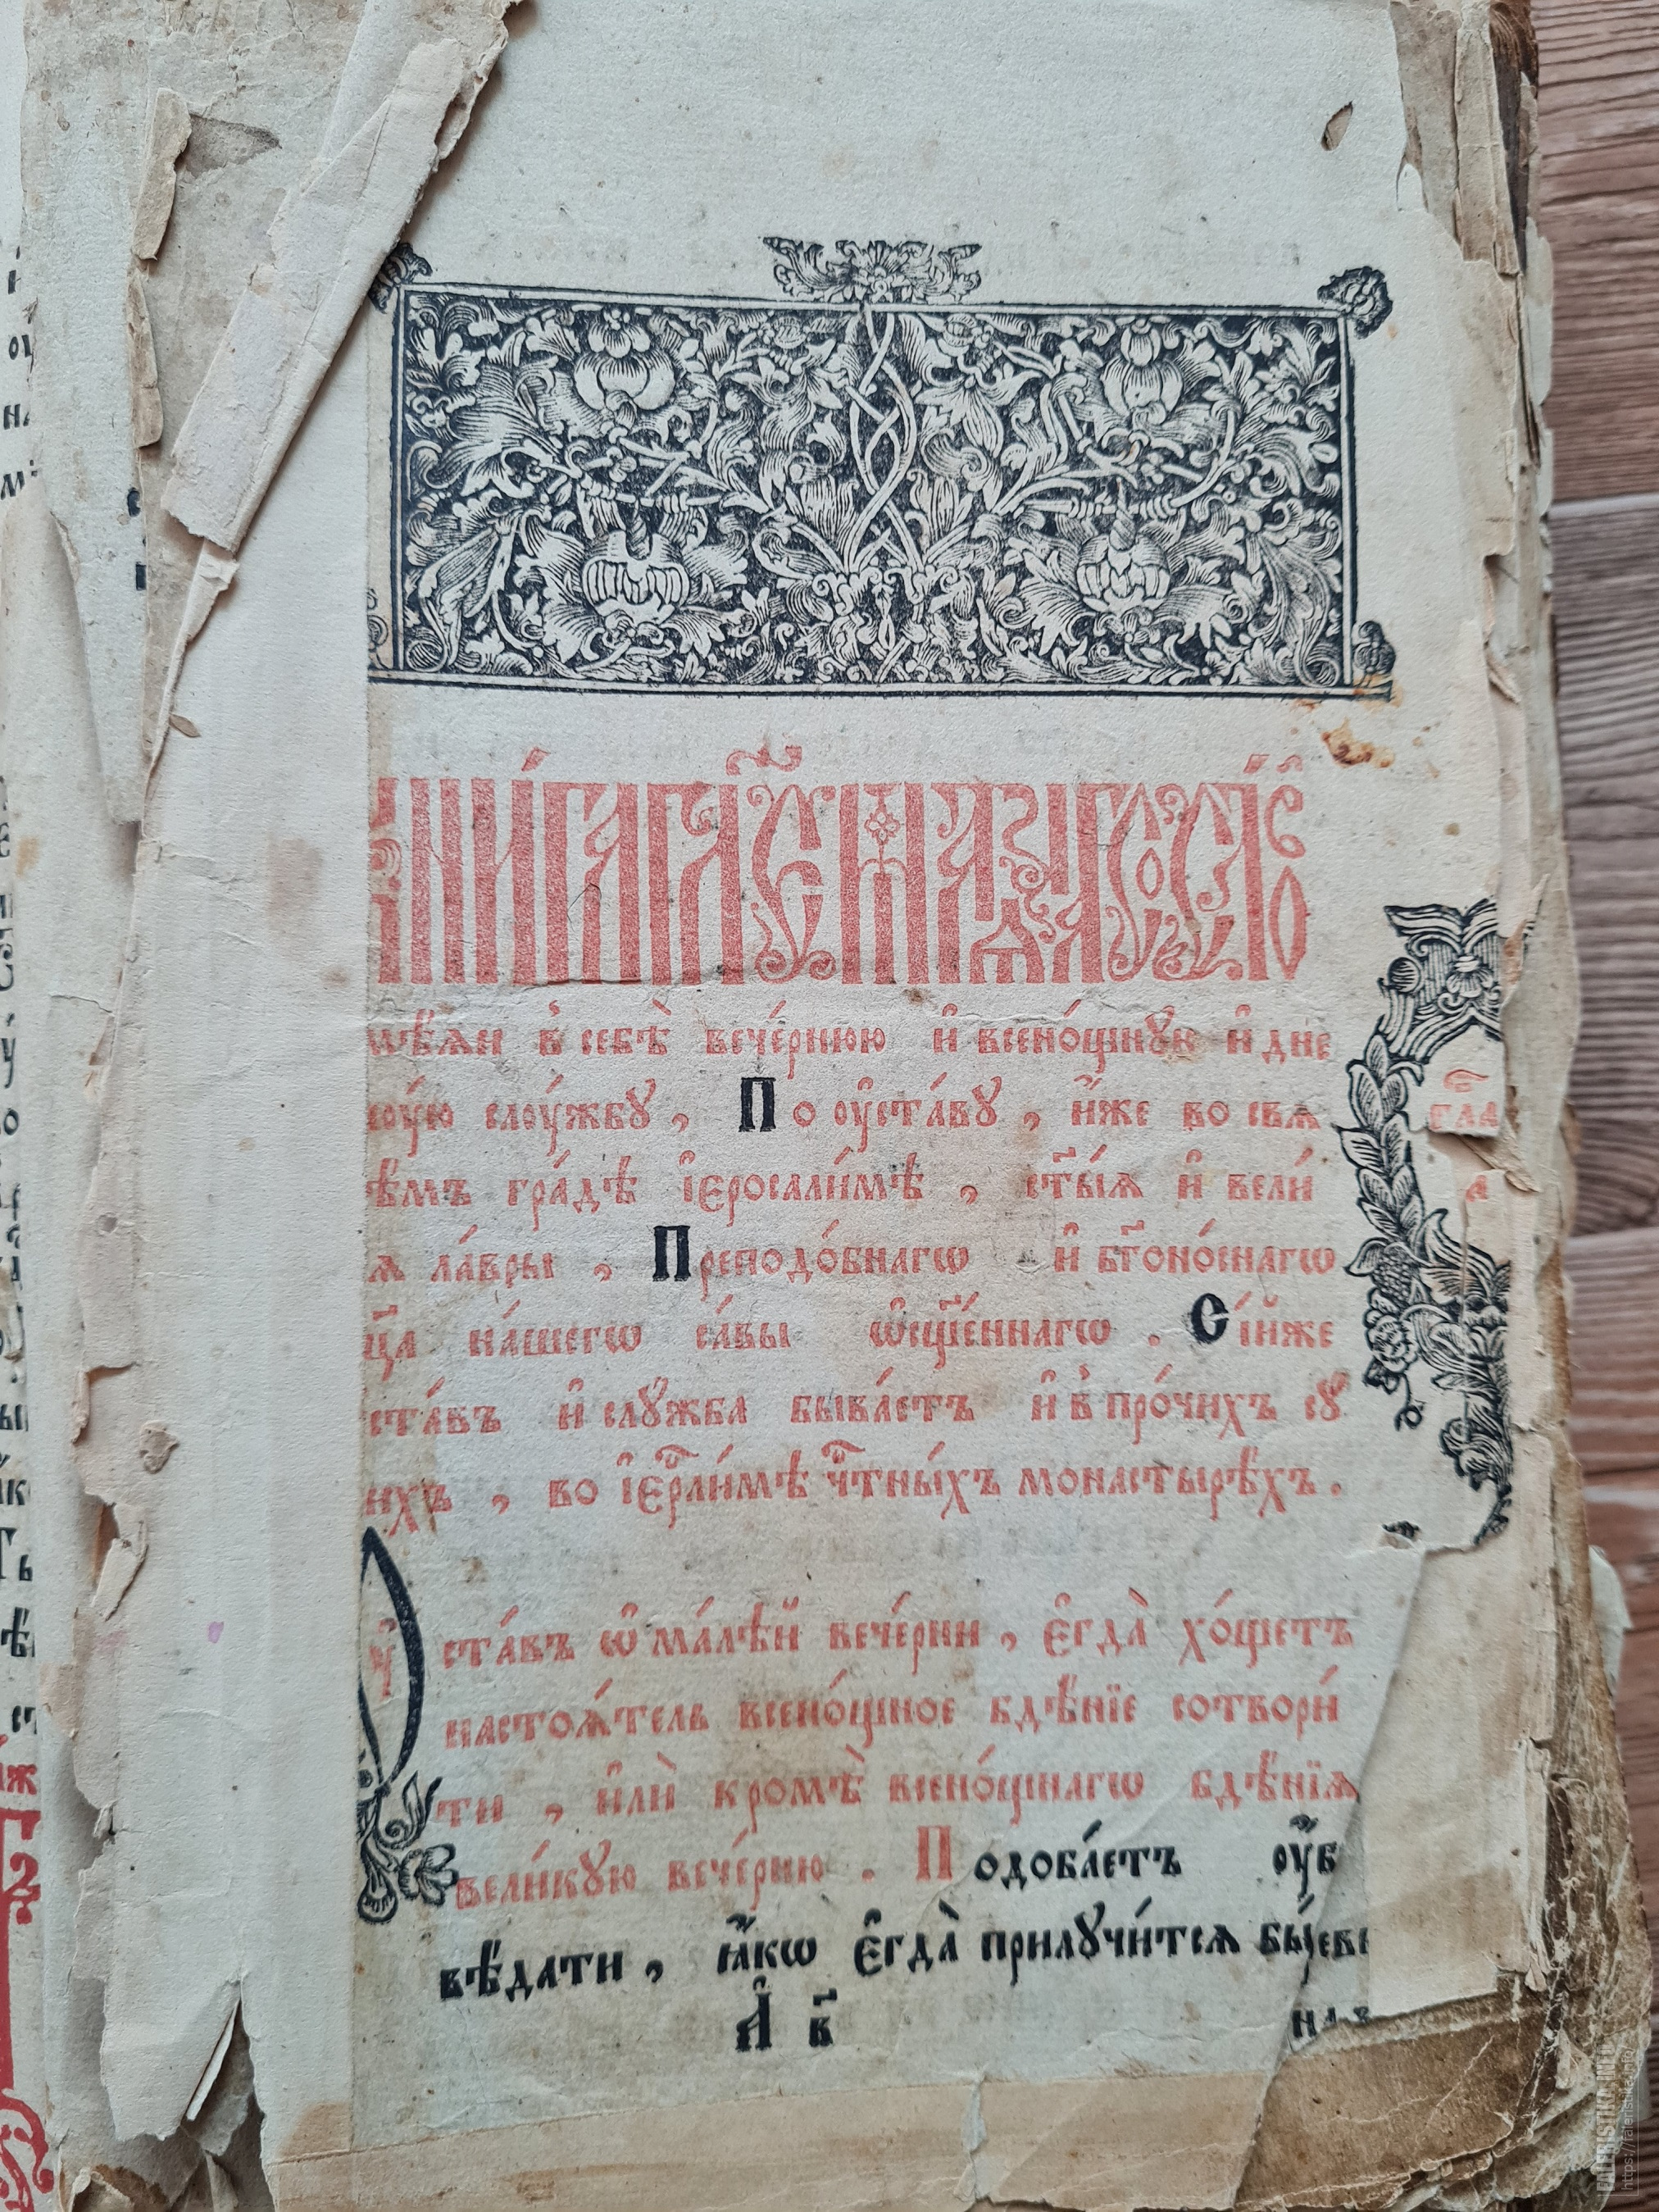 КНИ́ГА ГЛ҃ЕМАѦ ᲂУ҆СТА́ВЪ
и҆мѣ́ѧи в̾ себѣ̀ вече́рнюю и҆ всено́щнꙋю и҆ дне
ᲂу́ю слᲂу́жбꙋ, По ᲂу҆ста́вꙋ, и҆́же во свѧ
ѣ́мъ гра́дѣ і҆єросали́мѣ, ст҃ы́ѧ и҆ вели́
ѧ ла́вры, Преподо́бнагѡ и҆ бг҃оно́снагѡ
ц҃а на́шегѡ са́вы ѡ҆сщ҃е́ннагѡ. Сі́йже
ста́въ и҆ слꙋ́жба быва́етъ и҆ в̾ про́чихъ сꙋ
ихъ, во і҆єрⷭ҇ли́мѣ чⷭ҇тны́хъ монастырѣ́хъ.
Оу҆
ста́въ ѡ҆ ма́лѣй вече́рни, є҆гда̀ хо́щетъ
настоѧ́тель всено́щное бдѣ́нїе сотвори́
ти, и҆лѝ кромѣ̀ всено́щнагѡ бдѣ́нїѧ
вели́кꙋю вече́рню. Подоба́етъ ᲂу҆́б
вѣ́дати, ꙗ҆́кѡ є҆гда̀ прилꙋчи́тсѧ
А҆ в҃
гла
а